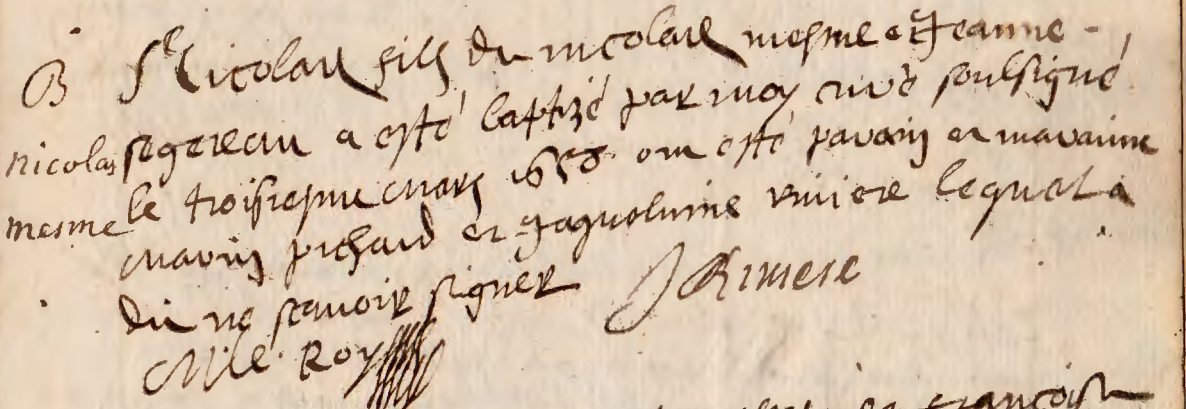 B
Nicolas
mesme
Nicolas filz de nicolas mesme et Jeanne
segereau a esté baptizé par moy curé soulsigné
le troisiesme mars ont esté parain et maraine
marin pichard et Jaquelinne riviere lequel a
dit ne scavoir signer J Riviere
Roy
françois